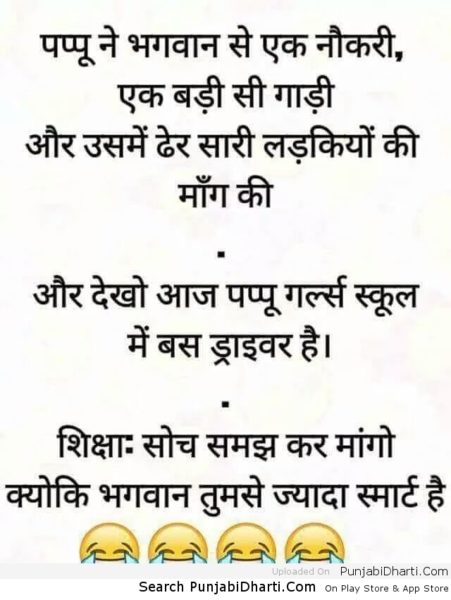 पप्पू ने भगवान से एक नौकरी,
एक बड़ी सी गाड़ी
और उसमें ढेर सारी लड़कियों की
माँग की
.
और देखो आज पप्पू गर्ल्स स्कूल
में बस ड्राइवर है।
.
शिक्षाः सोच समझ कर मांगो
क्योकि भगवान तुमसे ज्यादा स्मार्ट है
😂😂😂😂
Uploaded On PunjabiDharti.Com
Search PunjabiDharti.Com On Play Store & App Store